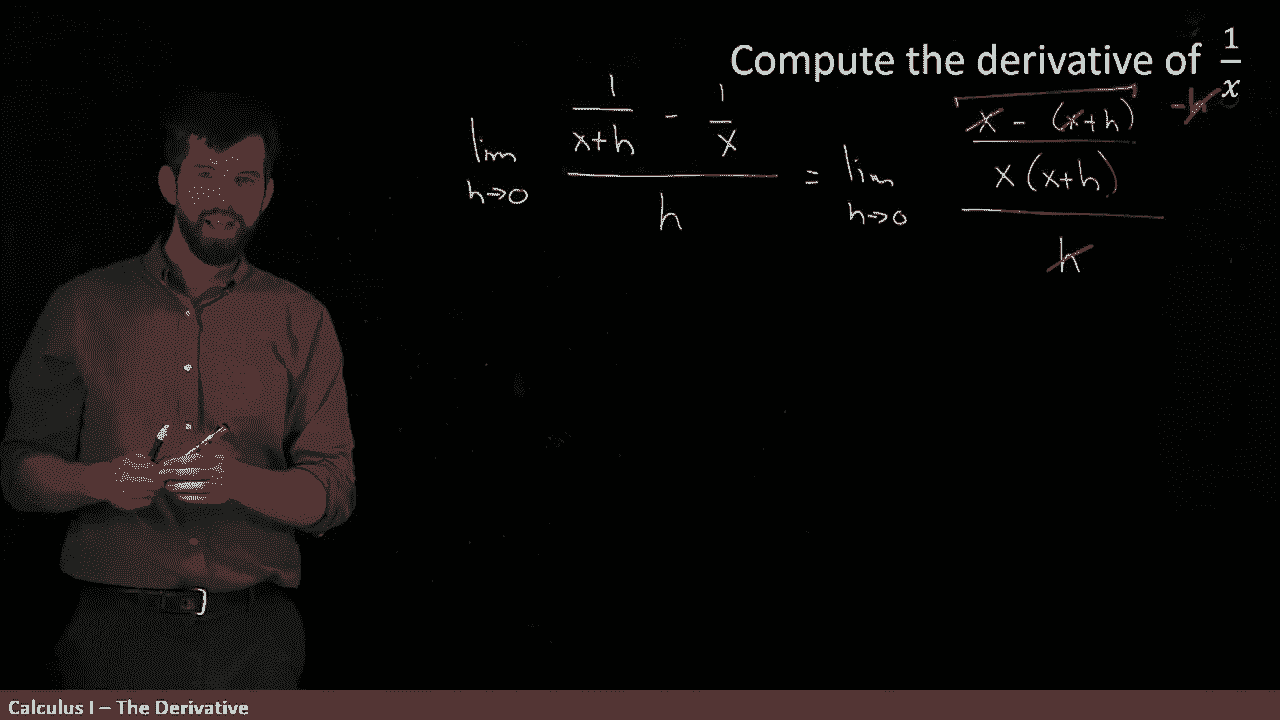 Compute the derivative of 1/x
lim h→0 (1/(x+h) - 1/x)/h = lim h→0 ((x - (x+h))/(x(x+h)))/h
-h
Calculus I – The Derivative